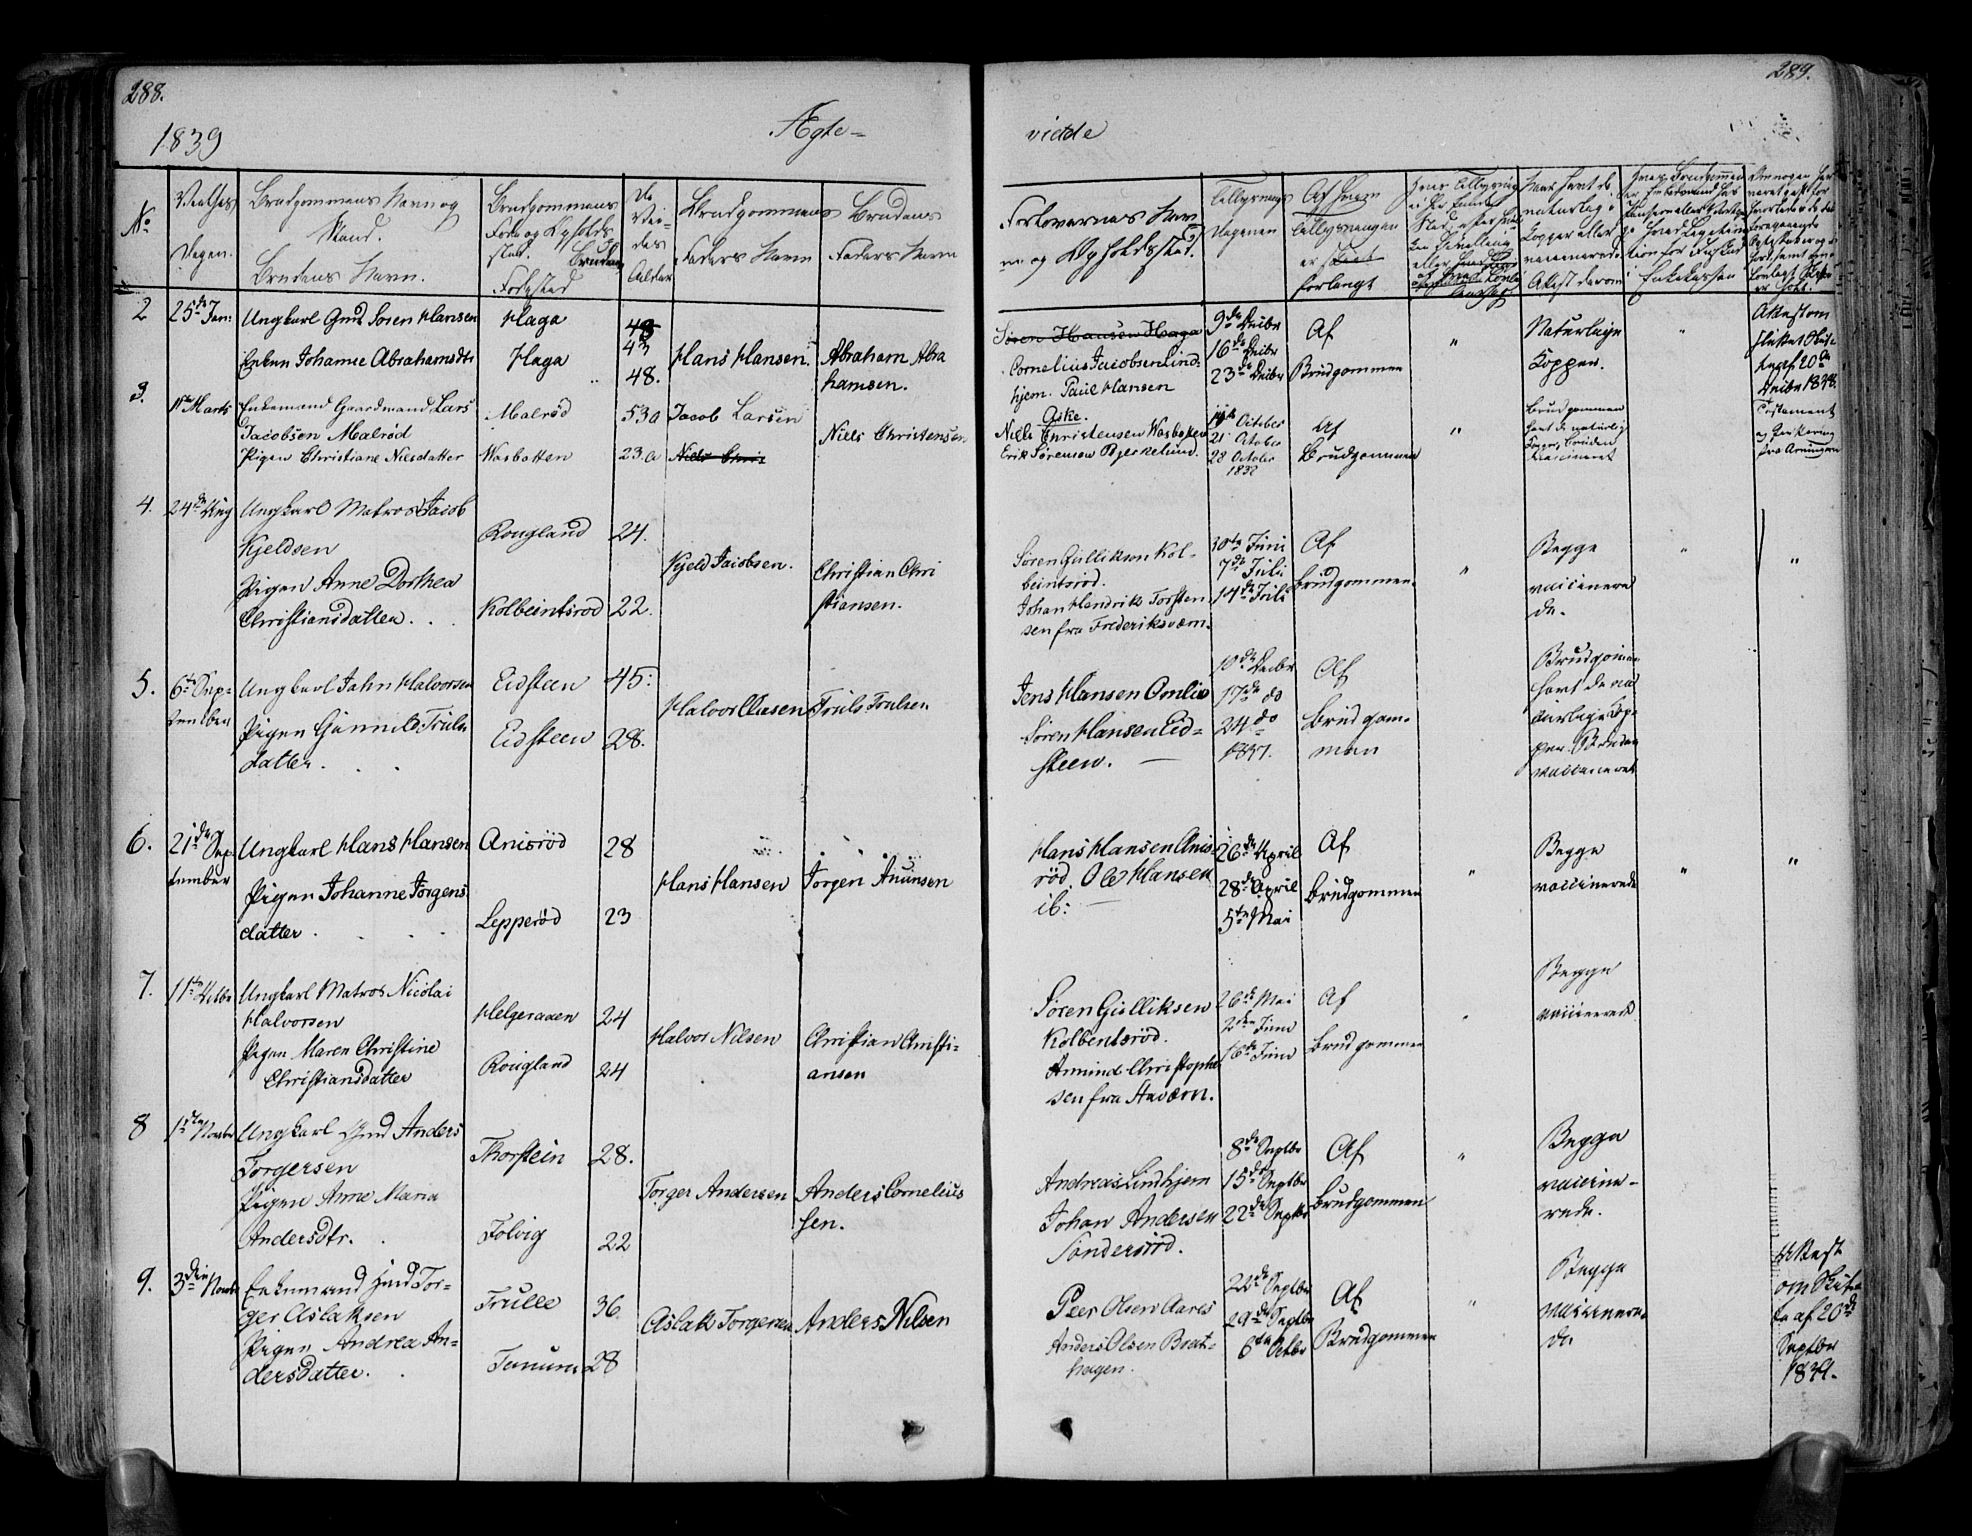 288.
289.
1839
Ægte-
vidde
No
Vielses
Dagen.
Brudgommens Navn og
Stand.
Brudens Navn.
Brudgommens
Fødested
De
Vie-
des
Alder
Brudgommens
Faders Navn
Brudens
Faders Navn
Forlovernes Nav
ne og Opholdssted.
Tillysnings
Dagenen
Af hvem
Tillysningen
er
forlangt
2
25de Jan:
Ungkarl Gmd Søren Hansen
Enken Johanne Abrahamsdtr
Haga
Haga
43
48.
Hans Hansen.
Abraham Abra
hamsen.
Søren Hansen Haga
Cornelius Jacobsen Lind-
hjem. Paul Hansen
Aske.
9de Decbr
16de Decbr
23de Decbr
Af
Brudgommen
"
Naturlige
Kopper.
"
Attest om
20de
Decbr 1838.
3.
1ste Marts
Enkemand Gaardmand Lars
Jacobsen Malrød
Pigen Christiane Nilsdatter
Malrød
Wasbotten
53 a
23. a
Jacob Larsen
Niels Chris
Niels Christensen
Niels Christensen Wasbotten
Erik Sørensen Bjerkelund.
14de October
21 October
28 October
1832
Af
Brudgommen
"
Brudgommen
havt de naturlige
Kopper, Bruden
vaccineret
Testament
og
fra Amtmanden
4.
24de Aug
Ungkarl Matros Jacob
Kjeldsen
Pigen Anne Dorthea
Christiansdatter. . .
Rougland
Kolbeintsrod
24.
22.
Kjeld Jacobsen.
Christian Chri
stiansen.
Søren Gulliksen Kol-
beintsrød.
Johan Hendrik Torsten
sen fra Frederiksværn.
30te Juni
7de Juli
14de Juli
Af
Brudgommen.
"
Begge
vaccinere
de.
"
"
5.
6te Sep-
tember
Ungkarl Jahn Halvorsen
Pigen Gunnild Truls
datter. . .
Eidsteen
Eidsteen
45.
28.
Halvor Olsen
Truls Trulsen
Jens Hansen Omlid
Søren Hansen Eid-
steen. —
10de Decbr
17de do
24. do
1837.
Af
Brudgom-
men
Brudgommen
havt de nat
turlige Kop-
per. Bruden
vaccineret
6.
21de Sep-
tember
Ungkarl Hans Hansen
Pigen Johanne Jørgens
datter . . .
Anisrød
Lepperød
28
23
Hans Hansen
Jørgen Anunsen
Hans Hansen Anis-
rød. Ole Hansen
ib: —
26de April
28de April
5te Mai
Af
Brudgommen
"
Begge
vaccinerede
"
"
7.
11te Octbr
Ungkarl Matros Nicolai
Halvorsen
Pigen Maren Christine
Christiansdatter
Helgeraaen
Rougland
24
24
Halvor Nilsen
Christian Christi-
ansen
Søren Gulliksen
Kolbentsrød.
Amund Christophe
sen fra Staværn.
26de Mai
2den Juni
16de Juni
Af
Brudgommen
"
Begge
vaccinerede
8
1ste Novbr
Ungkarl Gmd Anders
Torgersen
Pigen Anne Maria
Andersdtr. .
Thorstein
Folvig
28.
22
Torger Andersen
Anders Cornelius
sen.
Andreas Lindhjem
Johan Andersen
Søndersrød.
8de Septbr
15de Septbr
22de Septbr
Af
Brudgommen
"
Begge
vaccine-
rede.
9.
3die Novbr
Enkemand Gmd Tor-
ger Aslaksen
Pigen Andrea An-
dersdatter. .
Trulle
Tanum
36
28
Aslak Torgersen
Anders Nilsen
Peer Olsen Aarss
Anders Olsen Bratt-
hagen.
22de Septbr
29de Septbr
6te Octbr
Af
Brudgommen
"
Begge
vaccinere-
de
Attest
om Skif-
te af 20de
Septbr